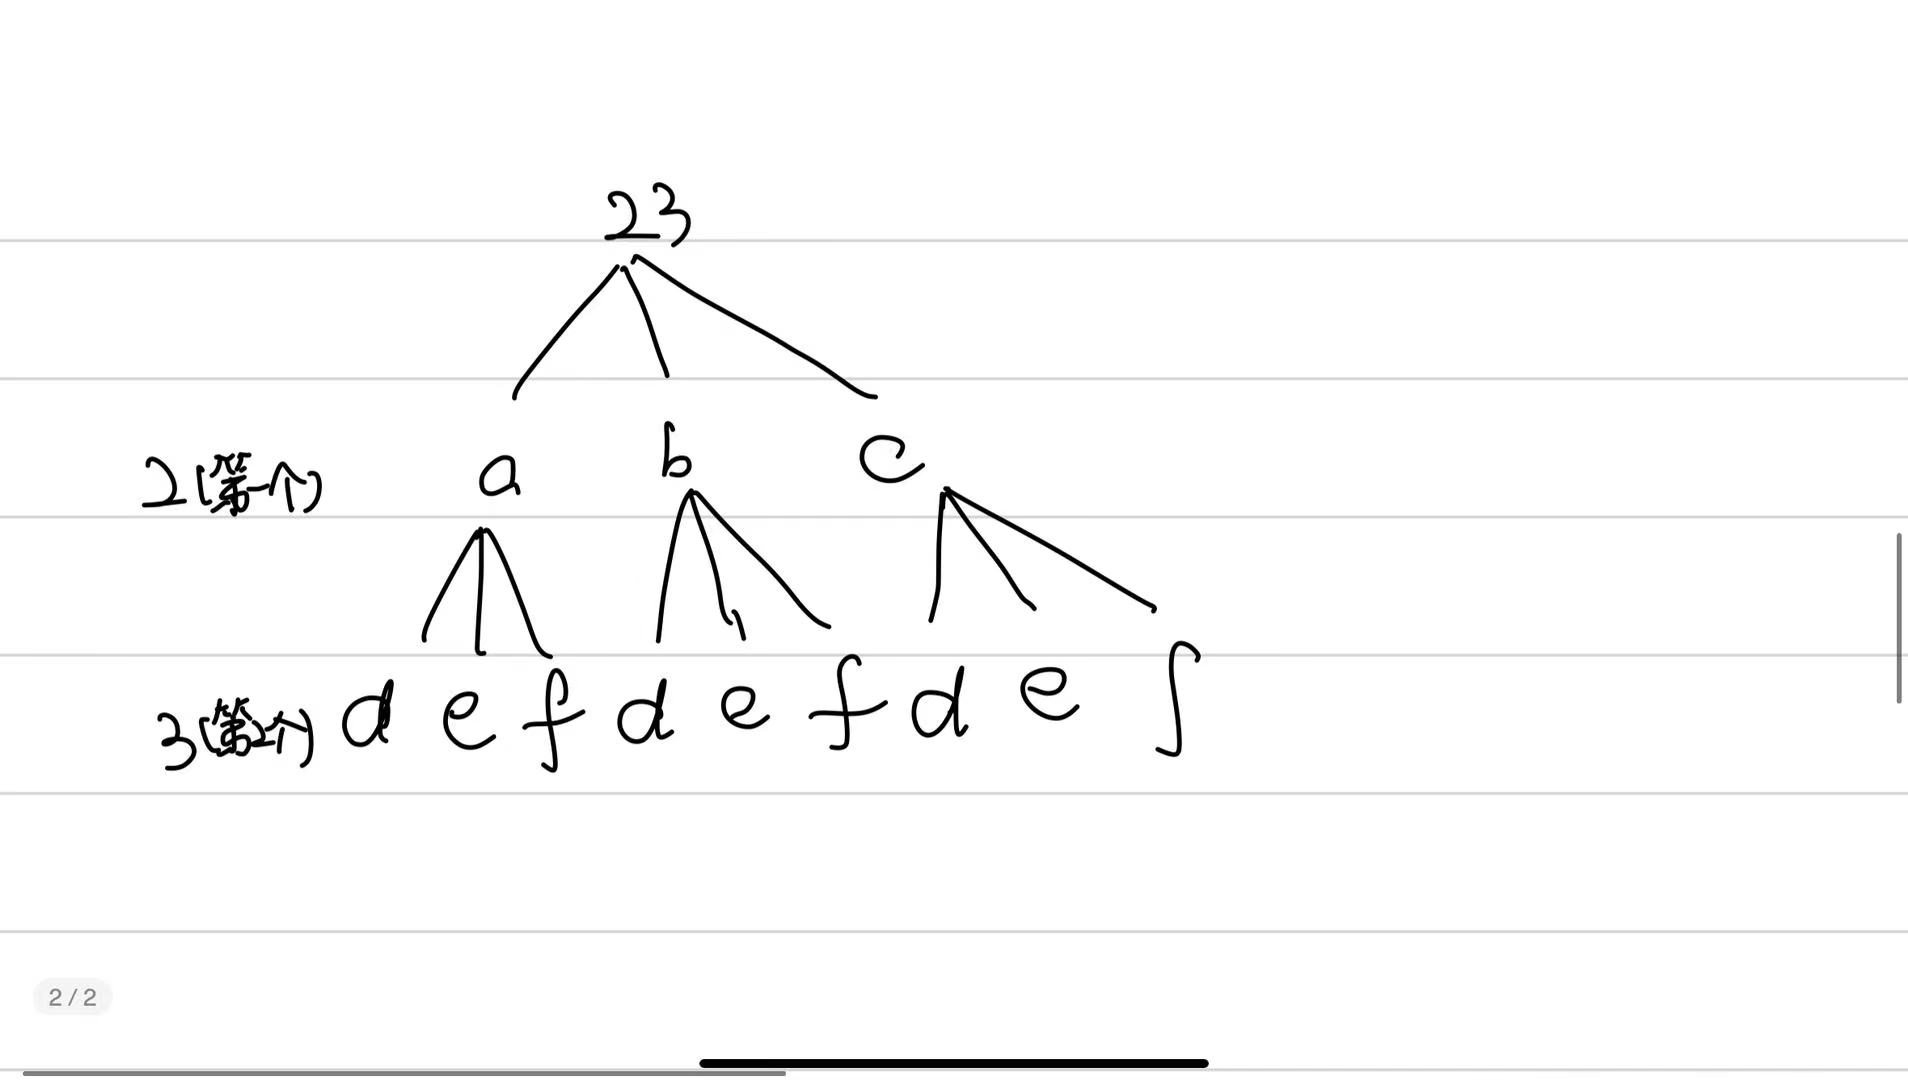 23
2(第一个) a b c
3(第2个) d e f d e f d e f
2 / 2